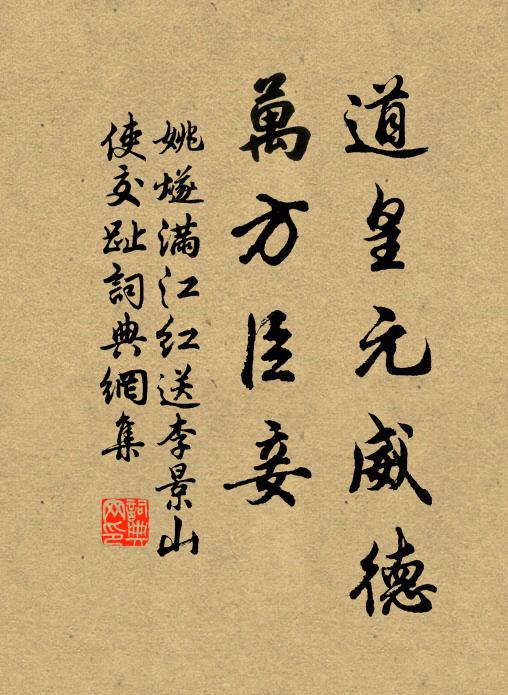 道皇元威德
萬方臣妾
姚燧滿江紅送李景山
使交趾詞典網集
詞典網印